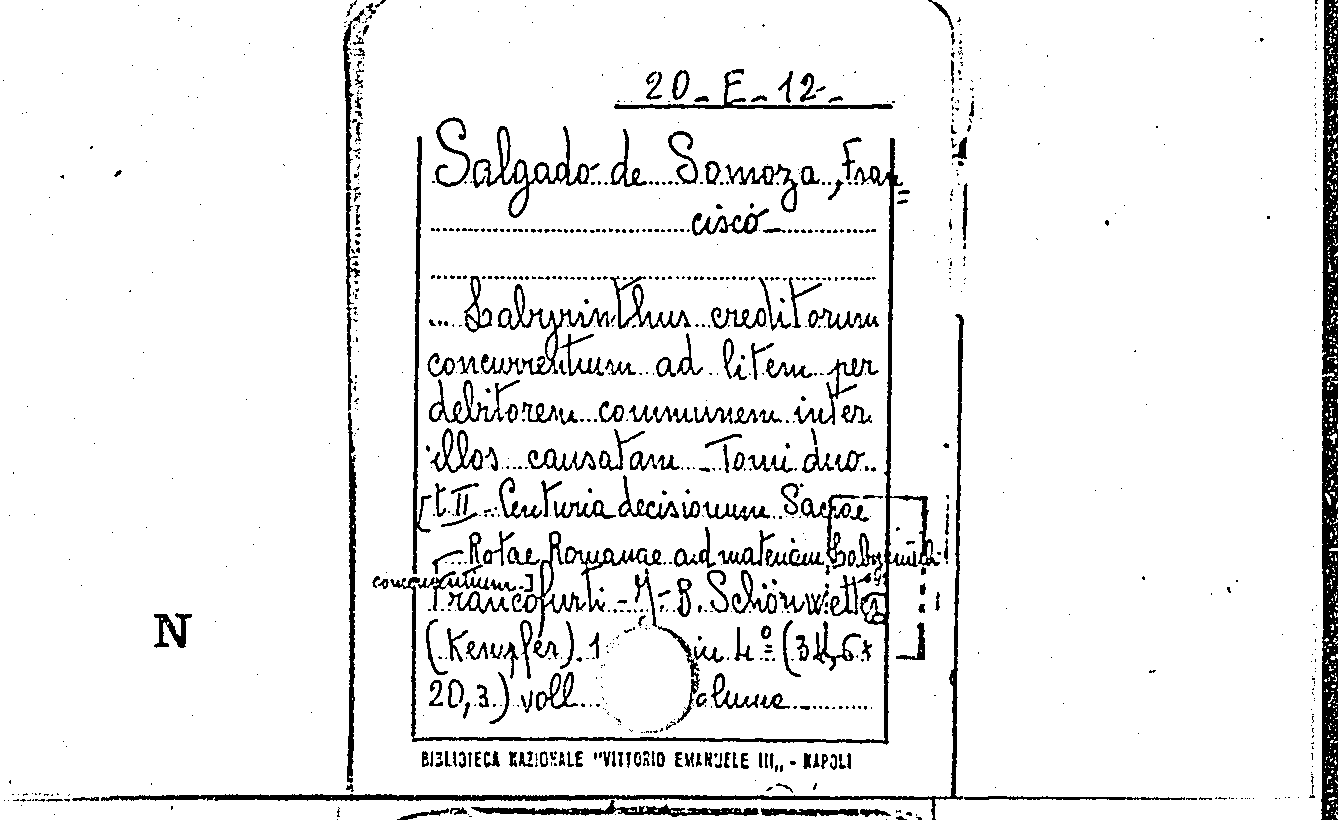 20-E-12-
Salgado de Somoza, Fran=
cisco-
... Labyrinthus creditorum
concurrentium ad litem per
debitorem communem inter
illos causatam - Tomi duo.
[t. II - Centuria decisionum Sacrae
Rotae Romanae ad materiam
concurrentium.]
Francofurti - J. B. Schönwetter
(Kempfer). 1 in 4º (
20,3.) voll
N
BIBLIOTECA NAZIONALE "VITTORIO EMANUELE III,, - NAPOLI